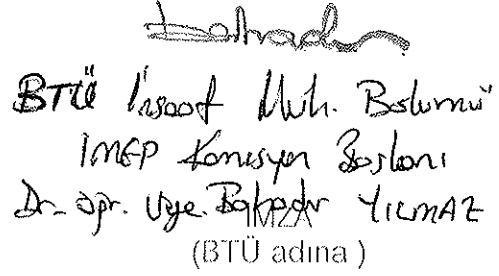 Bahadır
BTÜ İnşaat Müh. Bölümü
İMEP Komisyon Başkanı
Dr. Öğr. Üye. Bahadır YILMAZ
İMZA
(BTÜ adına )